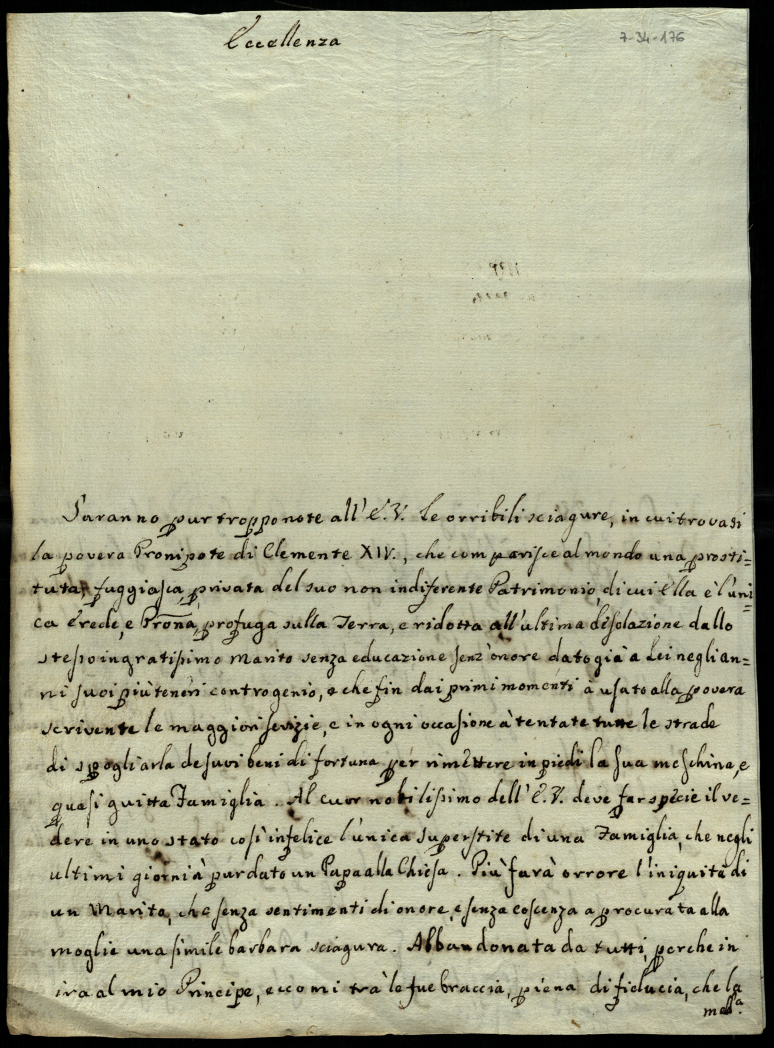 Eccellenza
7-34-176
Saranno pur troppo note all'E.V. le orribili sciagure, in cui trovasi
la povera Pronipote di Clemente XIV., che comparisce al mondo una prosti=
tuta, fuggiasca, privata del suo non indiferente Patrimonio, di cui Ella è l'uni=
ca Erede, e Pron̄a, profuga sulla Terra, e ridotta all'ultima disolazione dallo
stesso ingratissimo Marito senza educazione senz'onore datogià a Lei negli an=
ni suoi più teneri contro genio, e che fin dai primi momenti à usato alla povera
scrivente le maggiori sevizie, e in ogni occasione à tentate tutte le strade
di spogliarla de suoi beni di fortuna per rimettere in piedi la sua meschina, e
quasi guitta Famiglia. Al cuor nobilissimo dell'E.V. deve far specie il ve=
dere in uno stato così infelice l'unica superstite di una Famiglia, che negli
ultimi giorni à pur dato un Papa alla Chiesa. Più farà orrore l'iniquità di
un Marito, che senza sentimenti di onore, e senza coscenza a procurata alla
moglie una simile barbara sciagura. Abbandonata da tutti, perche in
ira al mio Principe, eccomi trà le sue braccia, piena di fiducia, che la